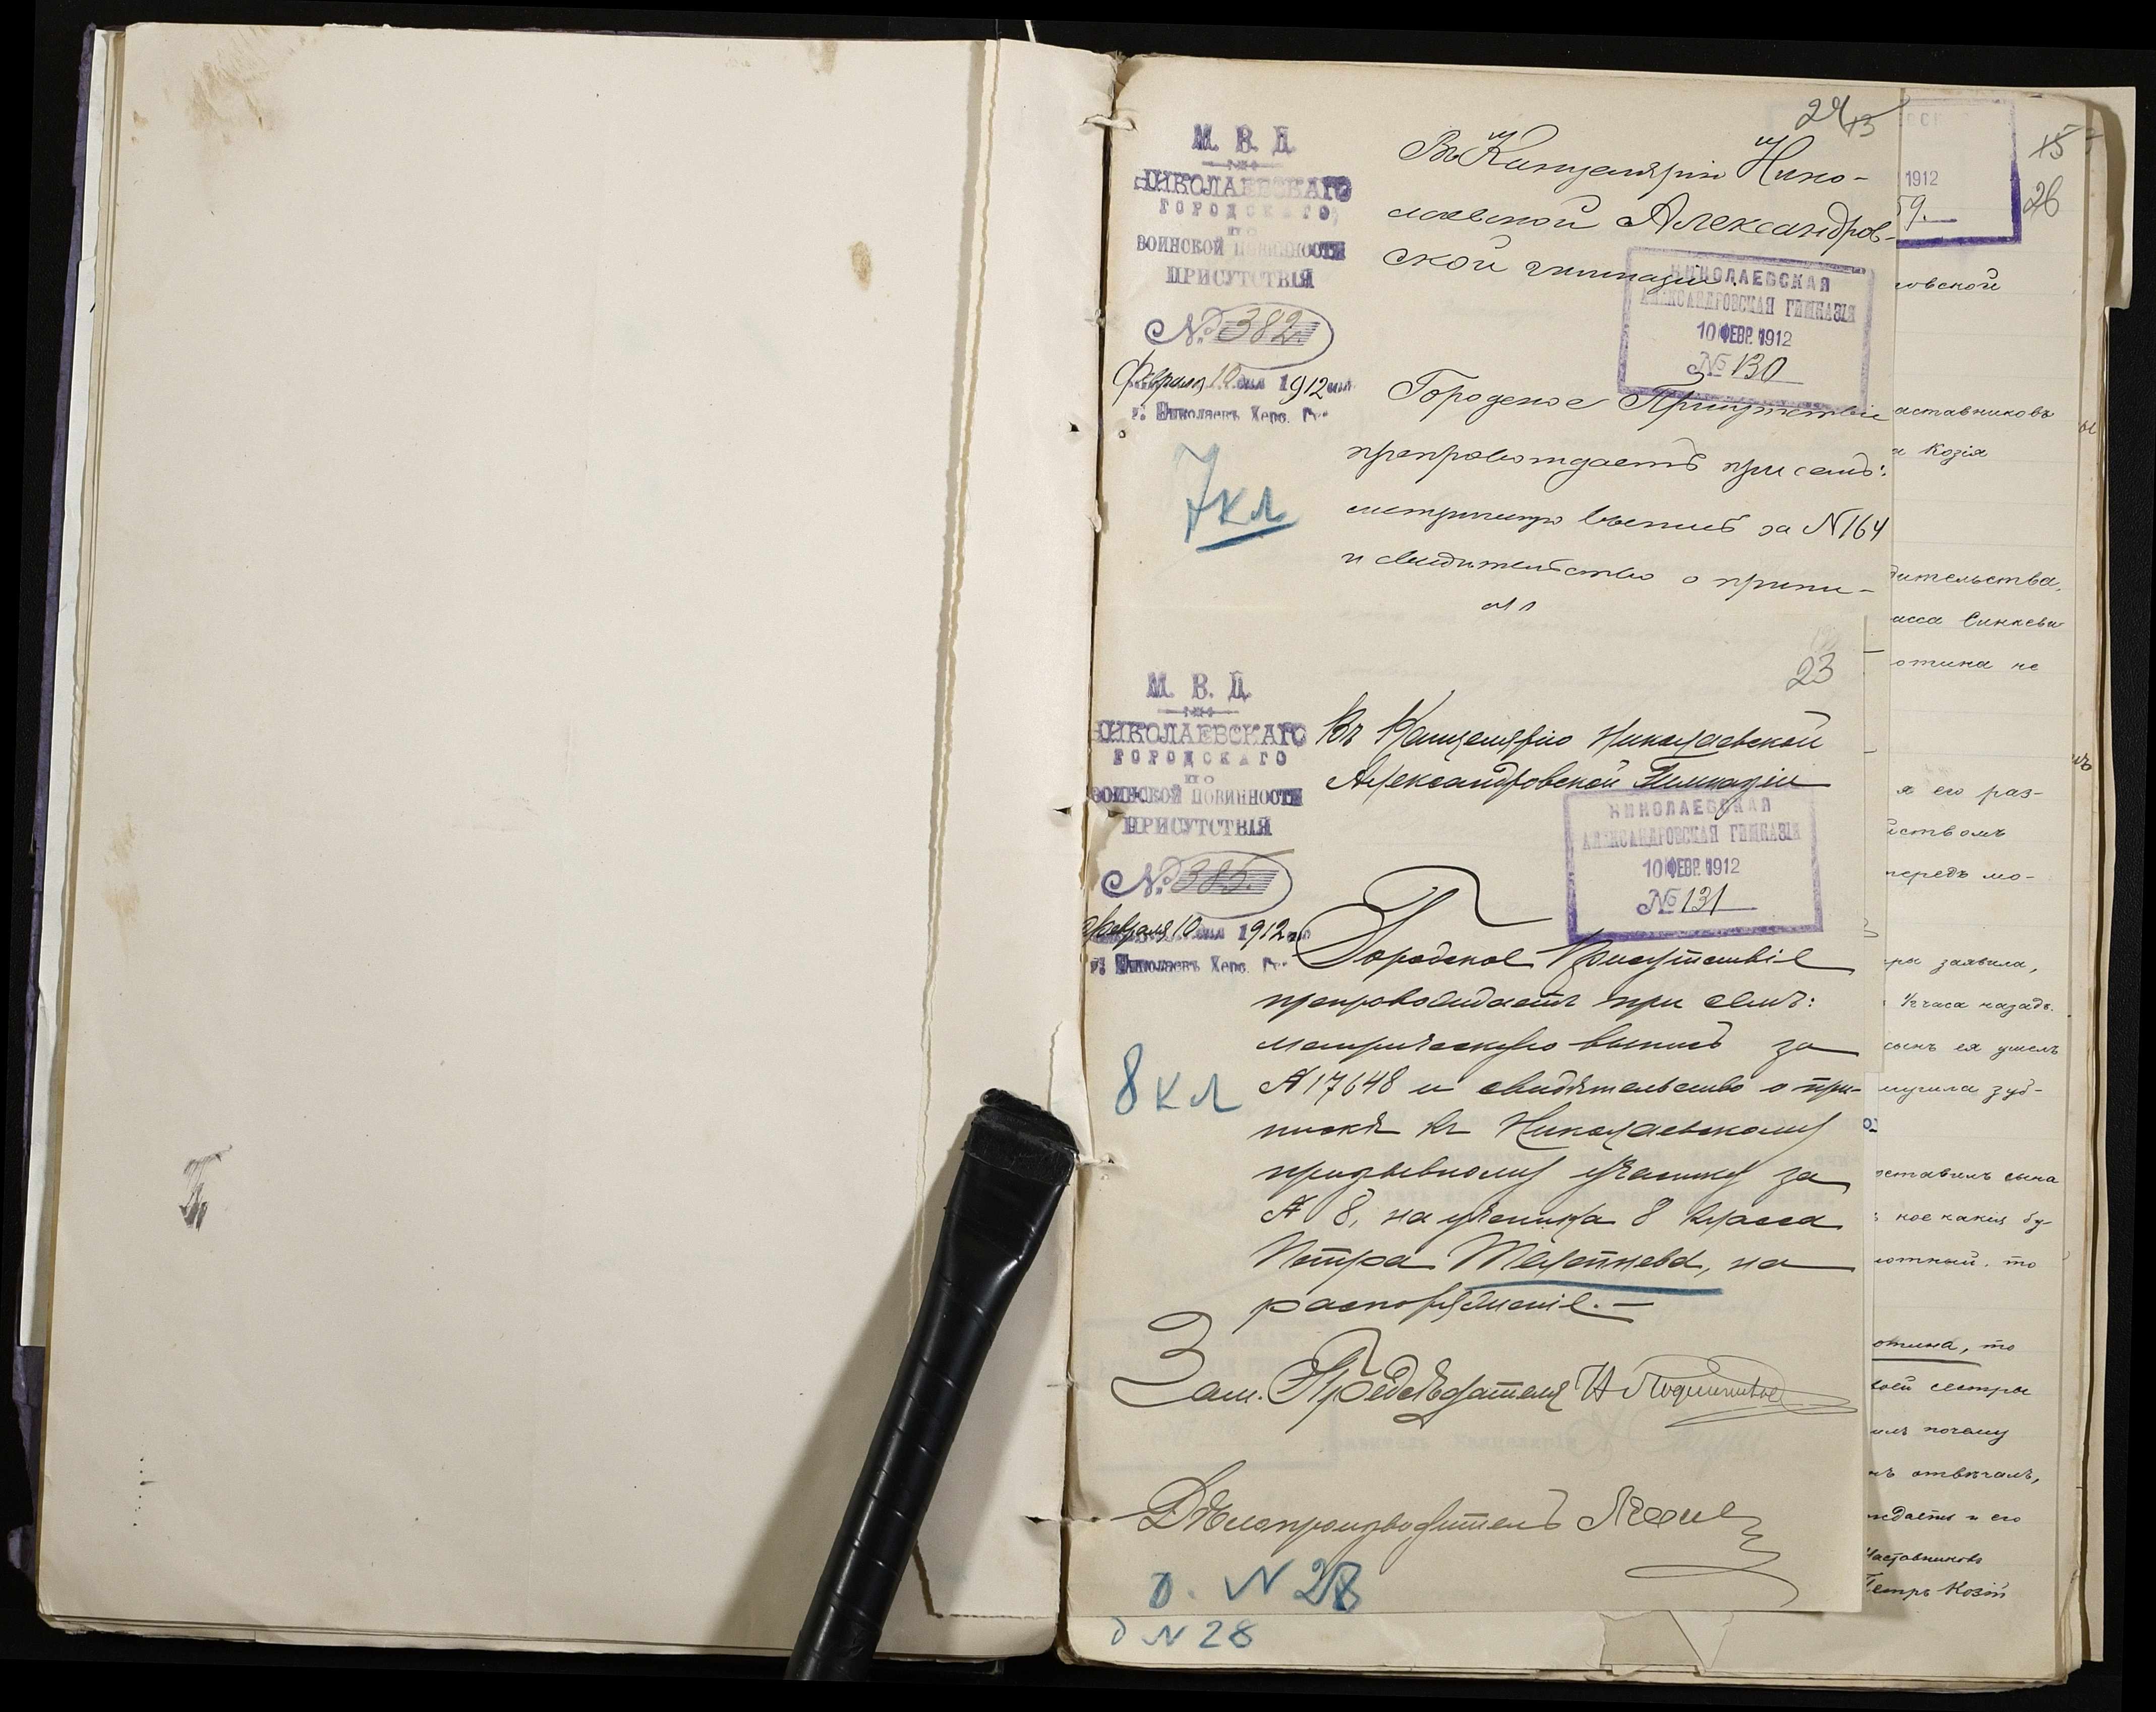 24
13
М. В. Д.
НИКОЛАЕВСКАГО
ГОРОДСКАГО
по
ВОИНСКОЙ ПОВИННОСТИ
ПРИСУТСТВІЯ
№ 382.
Февраля 10 дня 1912 года
г. Николаевъ Херс. Гу.
7 кл
Въ Канцелярію Нико-
лаевской Александров-
ской гимназіи.
НИКОЛАЕВСКАЯ
АЛЕКСАНДРОВСКАЯ ГИМНАЗІЯ
10 ФЕВР. 1912
№ 130
Городское Присутствіе
препровождаетъ при семъ:
метрическую выпись за N 164
и свидѣтельство о припи-
23
М. В. Д.
НИКОЛАЕВСКАГО
ГОРОДСКАГО
по
ВОИНСКОЙ ПОВИННОСТИ
ПРИСУТСТВІЯ
№ 385.
Февраля 10 дня 1912 года
г. Николаевъ Херс. Гу.
8 кл
Въ Канцелярію Николаевской
Александровской Гимназіи
НИКОЛАЕВСКАЯ
АЛЕКСАНДРОВСКАЯ ГИМНАЗІЯ
10 ФЕВР. 1912
№ 131
Городское Присутствіе
препровождаетъ при семъ:
метрическую выпись за
№ 17648 и свидѣтельство о при-
пискѣ къ Николаевскому
призывному участку за
№ 8, на ученика 8 класса
Петра, на
распоряженіе.—
Зам. Предсѣдателя
Дѣлопроизводитель
д. N 28
д N 28
15
26
1912
59.
ровской
аставниковъ
а Козія
дительства,
асса Синкеви-
отина не
я его раз-
йствомъ
передъ мо-
ра заявила,
½ часа назадъ.
сынъ ея ушелъ
лучила зуб-
оставилъ сына
кое какія бу-
лотный, то
отина, то
воей сестры
илъ почему
нъ отвѣчалъ,
ждаетъ и его
Наставниковъ
Петръ Козій